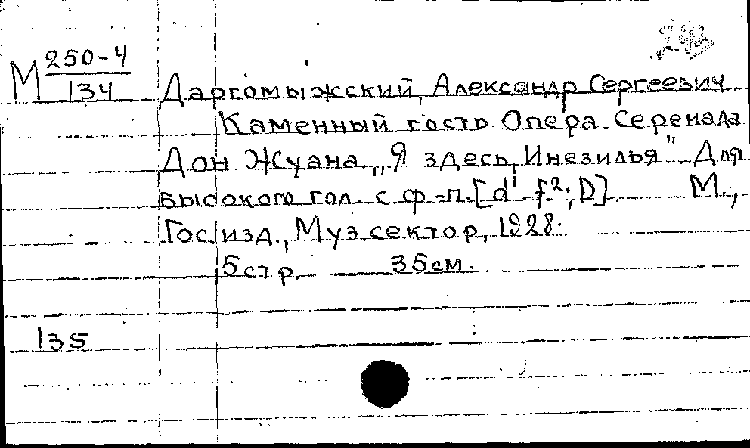 М 250-4
134
Даргомыжский, Александр Сергеевич
Каменный гость. Опера. Серенада
Дон Жуана „Я здесь, Инезилья". Для
высокого гол. с ф-п. [d¹ f²; D] М.,
Госиздат., Муз сектор, 1928.
5 стр. 35 см.
135